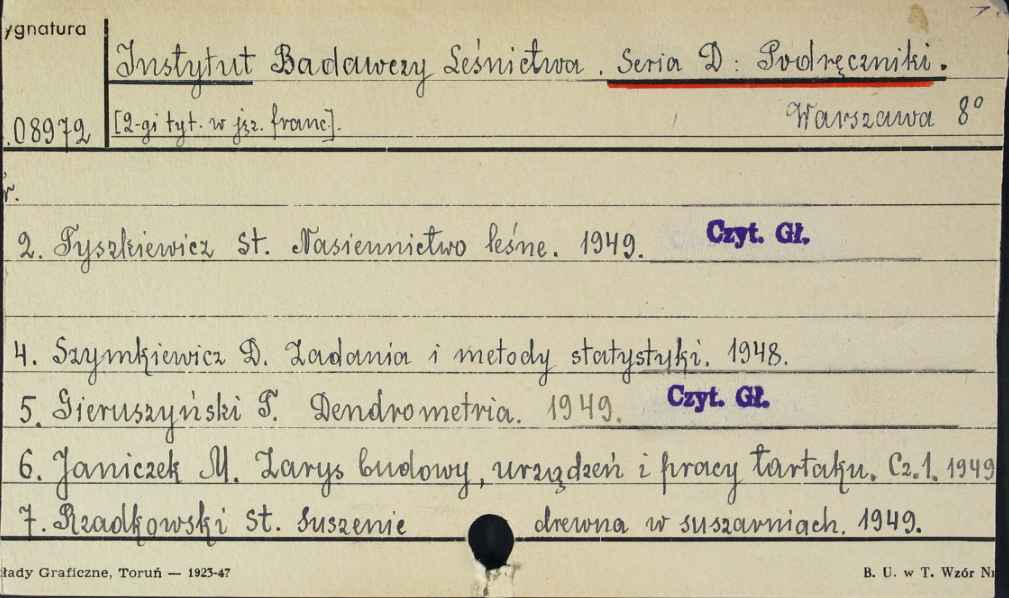 ygnatura
Instytut Badawczy Leśnictwa. Seria D: Podręczniki.
08972 [2-gi tyt. w jęz. franc]. Warszawa 8°
r.
2. Tyszkiewicz St. Nasiennictwo leśne. 1949. Czyt. Gł.
4. Szymkiewicz D. Zadania i metody statystyki. 1948.
5. Gieruszyński T. Dendrometria. 1949. Czyt. Gł.
6. Janiczek M. Zarys budowy, urządzeń i pracy tartaku. Cz.1. 1949
7. Rzadkowski St. Suszenie drewna w suszarniach. 1949.
łady Graficzne, Toruń — 1923-47 B. U. w T. Wzór Nr